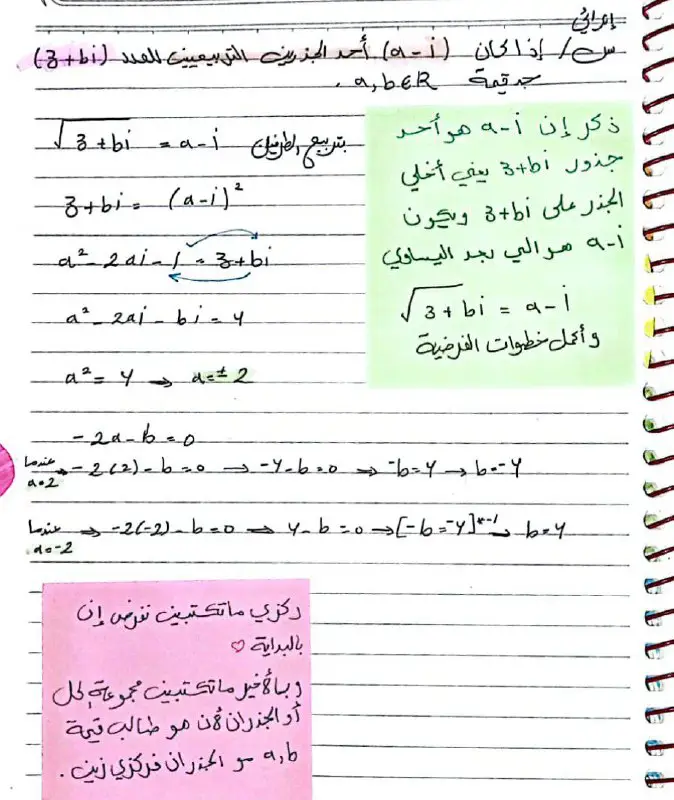 إثرائي
س/ إذا كان (a-i) أحد الجذرين التربيعيين للعدد (3+bi)
جد قيمة a,b∈R .
√3+bi = a-i بتربيع الطرفين
3+bi = (a-i)²
a² - 2ai - 1 = 3+bi
a² - 2ai - bi = 4
a² = 4 → a=± 2
- 2a - b = 0
عندما a=2 → -2(2) - b = 0 → -4 - b = 0 → -b = 4 → b = -4
عندما a=-2 → -2(-2) - b = 0 → 4 - b = 0 → [-b = -4]*-1 → b = 4
ذكر إن a-i هو أحد
جذور 3+bi يعني أخلي
الجذر على 3+bi ويكون
a-i هو الي بعد اليساوي
√3+bi = a-i
وأكمل خطوات الفرضية
ركزي ماتكتبين نفرض إن
بالبداية ♡
وبالأخير ماتكتبين مجموعة الحل
أو الجذران لأن هو طالب قيمة
a,b مو الجذران فركزي زين .